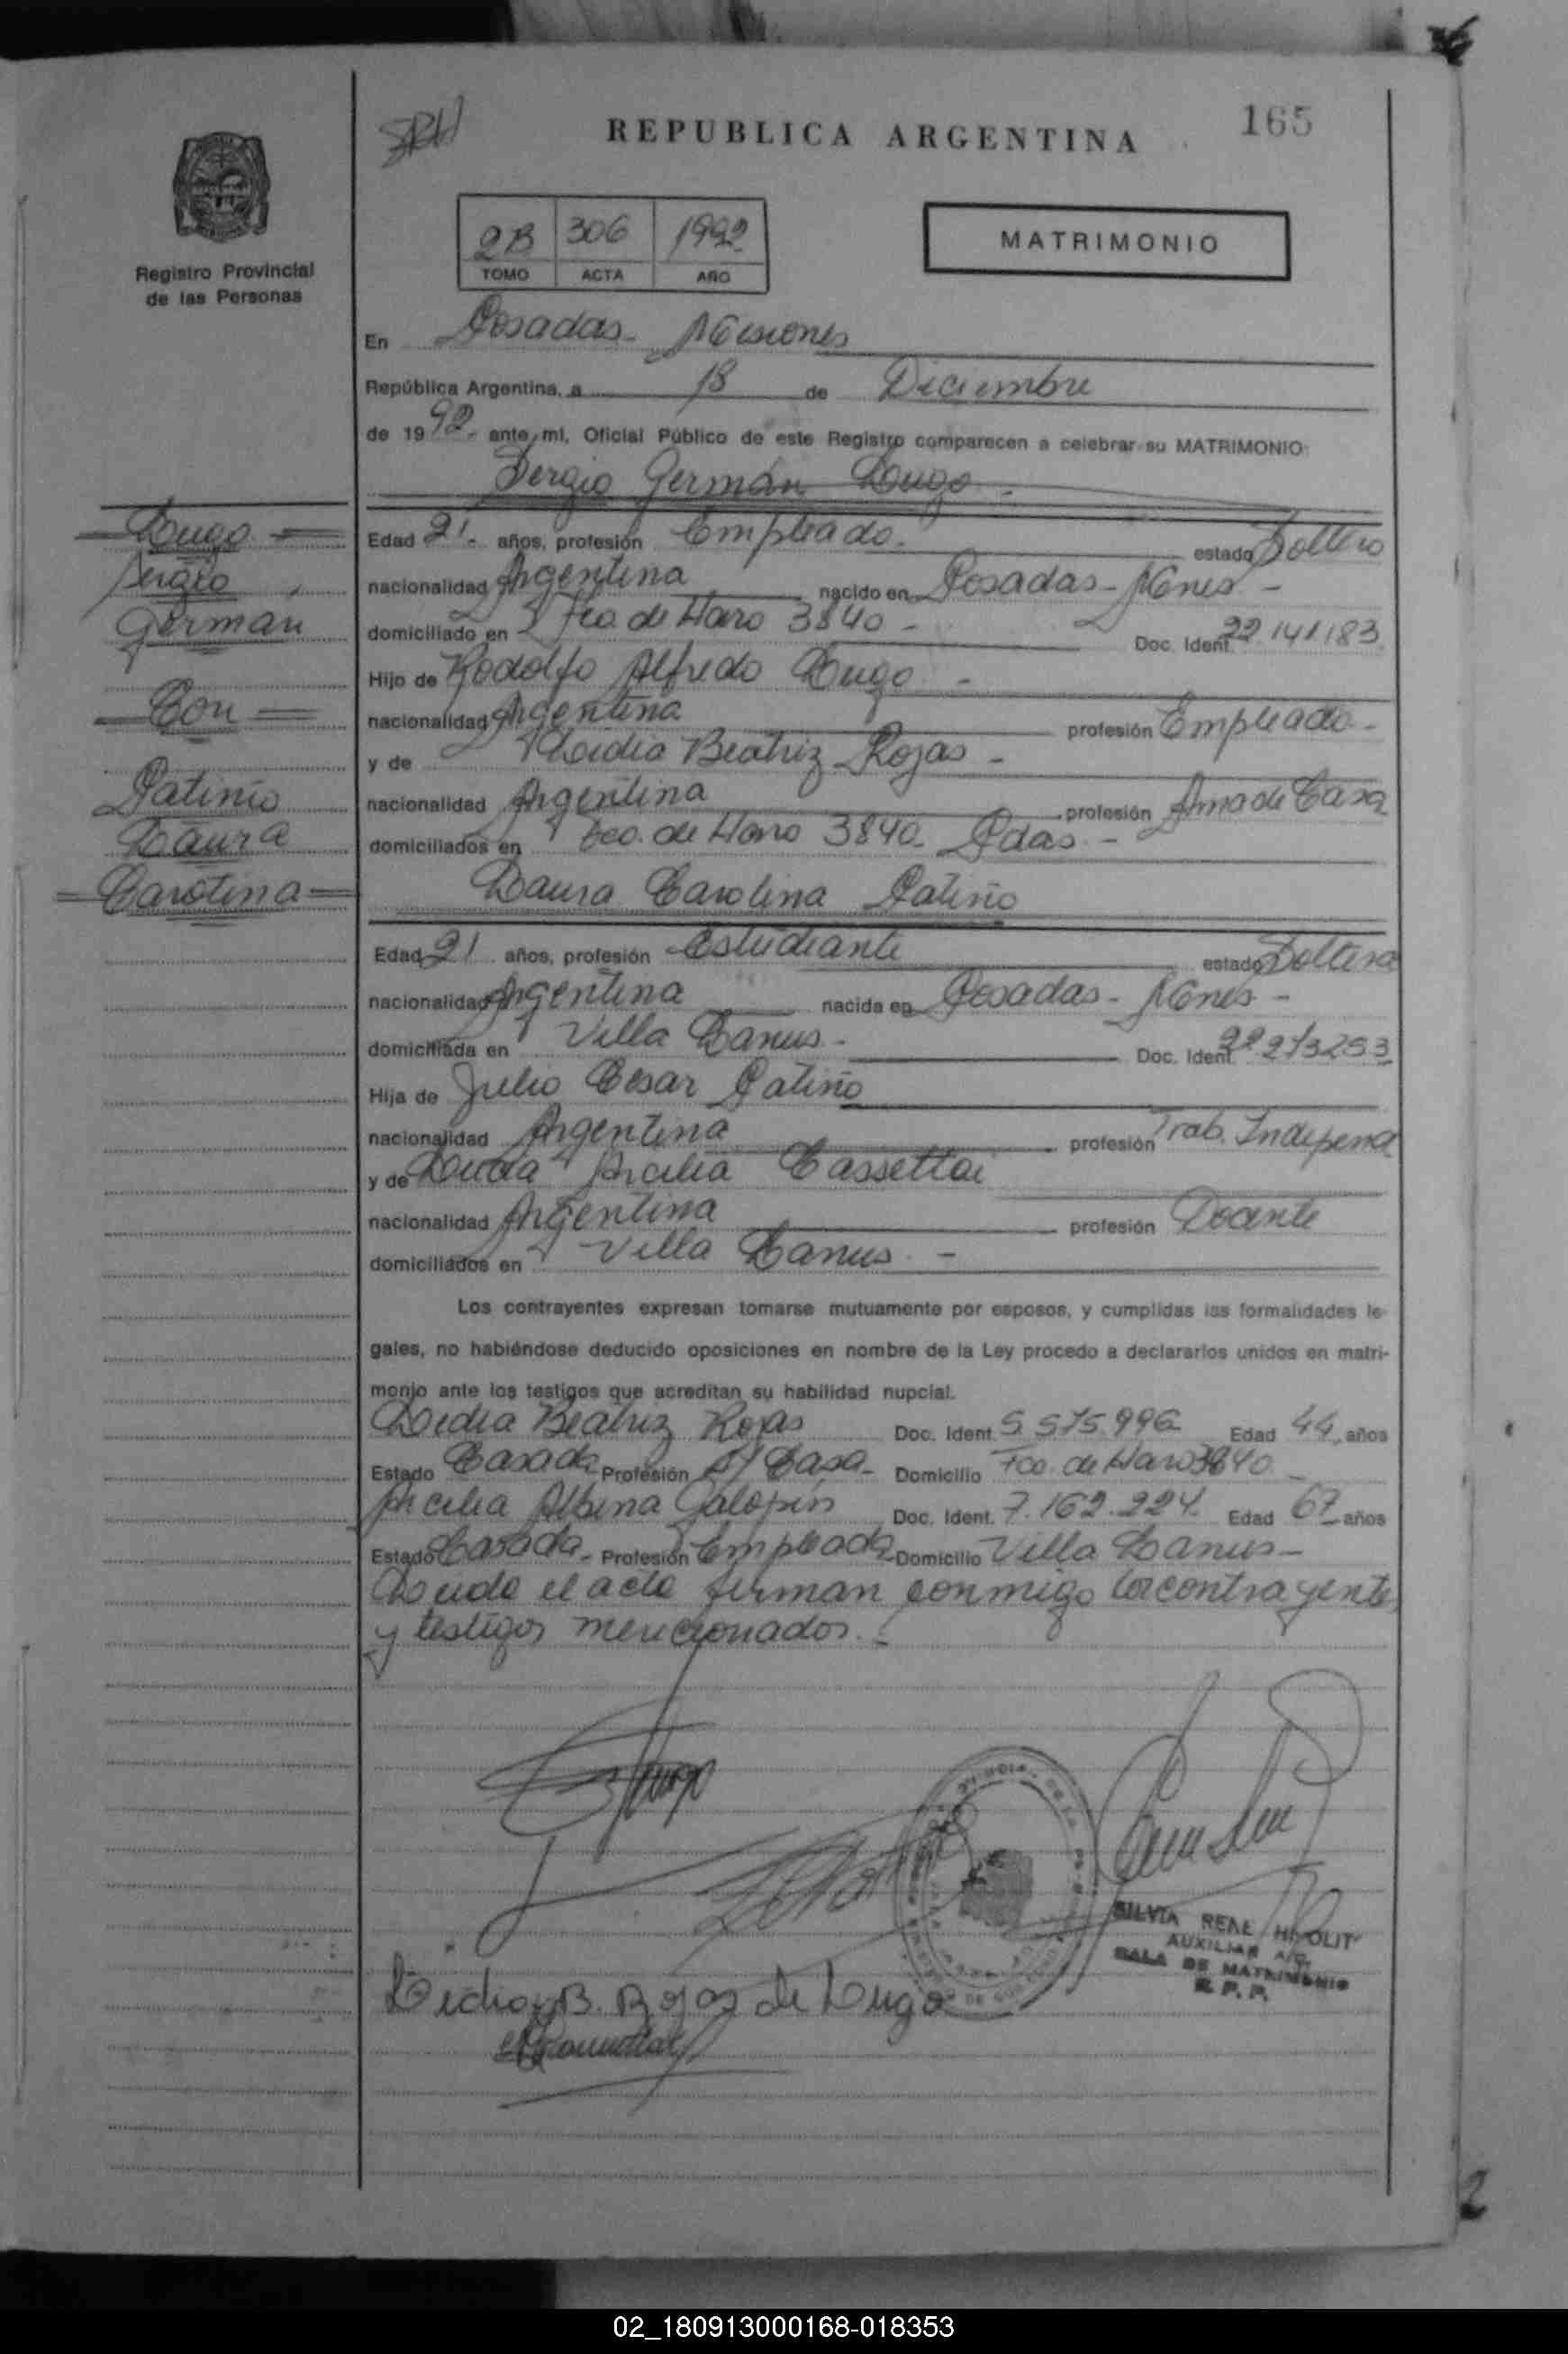 165
REPUBLICA ARGENTINA
Registro Provincial
de las Personas
2B 306 1992
TOMO ACTA AÑO
MATRIMONIO
En Posadas - Misiones
República Argentina, a 18 de Diciembre
de 1992 - ante mi, Oficial Público de este Registro comparecen a celebrar su MATRIMONIO:
Sergio Germán Lugo -
Lugo
Sergio
Germán
Con
Patiño
Laura
Carolina
Edad 21 - años, profesión Empleado - estado Soltero
nacionalidad Argentina nacido en Posadas - Mnes -
domiciliado en Fco. de Haro 3840 - Doc. Ident. 22.141.183
Hijo de Rodolfo Alfredo Lugo -
nacionalidad Argentina profesión Empleado -
y de Lidia Beatriz Rojas -
nacionalidad Argentina profesión Ama de Casa
domiciliados en Fco. de Haro 3840 - Pdas -
Laura Carolina Patiño
Edad 21 años, profesión Estudiante estado Soltera
nacionalidad Argentina nacida en Posadas - Mnes -
domiciliada en Villa Lanus - Doc. Ident.
Hija de Julio Cesar Patiño
nacionalidad Argentina profesión Trab. Independ
y de
nacionalidad Argentina profesión Docente
domiciliados en Villa Lanus -
Los contrayentes expresan tomarse mutuamente por esposos, y cumplidas las formalidades le-
gales, no habiéndose deducido oposiciones en nombre de la Ley procedo a declararlos unidos en matri-
monio ante los testigos que acreditan su habilidad nupcial.
Lidia Beatriz Rojas Doc. Ident. 5.575.996 Edad 44 años
Estado Casada Profesión A/ Casa - Domicilio Fco. de Haro 3840 -
Albina Galopin Doc. Ident. 7.162.224 Edad 67 años
Estado Casada - Profesión Empleada Domicilio Villa Lanus -
Leida el acta firman conmigo los contrayentes
y testigos mencionados. -
SILVIA RENE HIPOLIT
AUXILIAR
SALA DE MATRIMONIO
R. P. P.
Lidia B. Rojas de Lugo
02_180913000168-018353